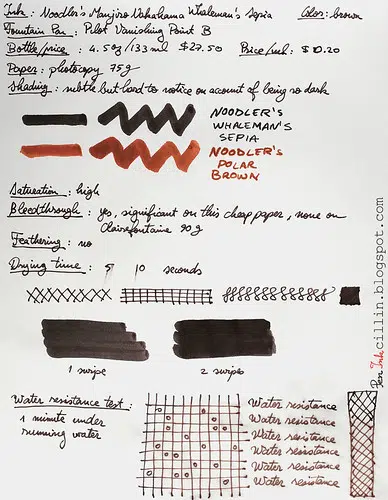 Ink : Noodler's Manjiro Nakahama Whaleman's Sepia Color: brown
Fountain Pen : Pilot Vanishing Point B
Bottle/price : 4.5oz/133ml $27.50 Price/ml : $0.20
Paper: photocopy 75g
Shading : subtle but hard to notice on account of being so dark
NOODLER'S
WHALEMAN'S
SEPIA
NOODLER'S
POLAR
BROWN
Saturation : high
Bleedthrough : yes, significant on this cheap paper, none on
Clairefontaine 90g
Feathering : no
Drying time : 5 10 seconds
1 swipe 2 swipes
Water resistance test :
1 minute under
running water
Water resistance
Water resistance
Water resistance
Water resistance
Water resistance
Water resistance
Pen Ink cillin.blogspot.com